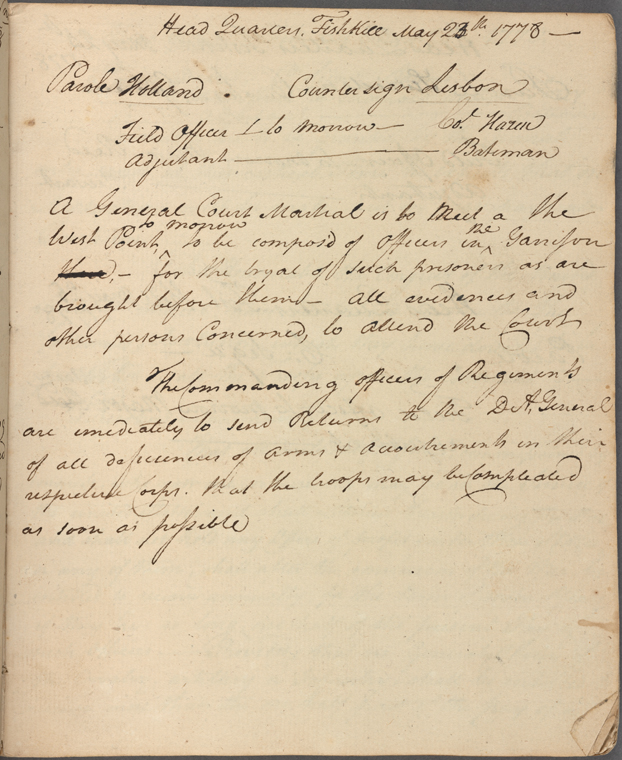 Head Quarters, Fishkill May 23th 1778 —
Parole Holland . Countersign Lisbon
Field Officer to morrow — Col. Hazen
Adjutant — Bateman
A General Court Martial is to meet a the
to morrow the
West Point ^ to be composd of officers in ^ Garrison
,– for the tryal of such prisoners as are
brought before them – all evidences and
other persons Concerned, to attend the Court
The Commanding officers of Regiments
are imediately to send Returns to the D. A. General
of all deficiences of Arms & accoutrements in their
respective Corps. that the troops may be Compleated
as soon as possible